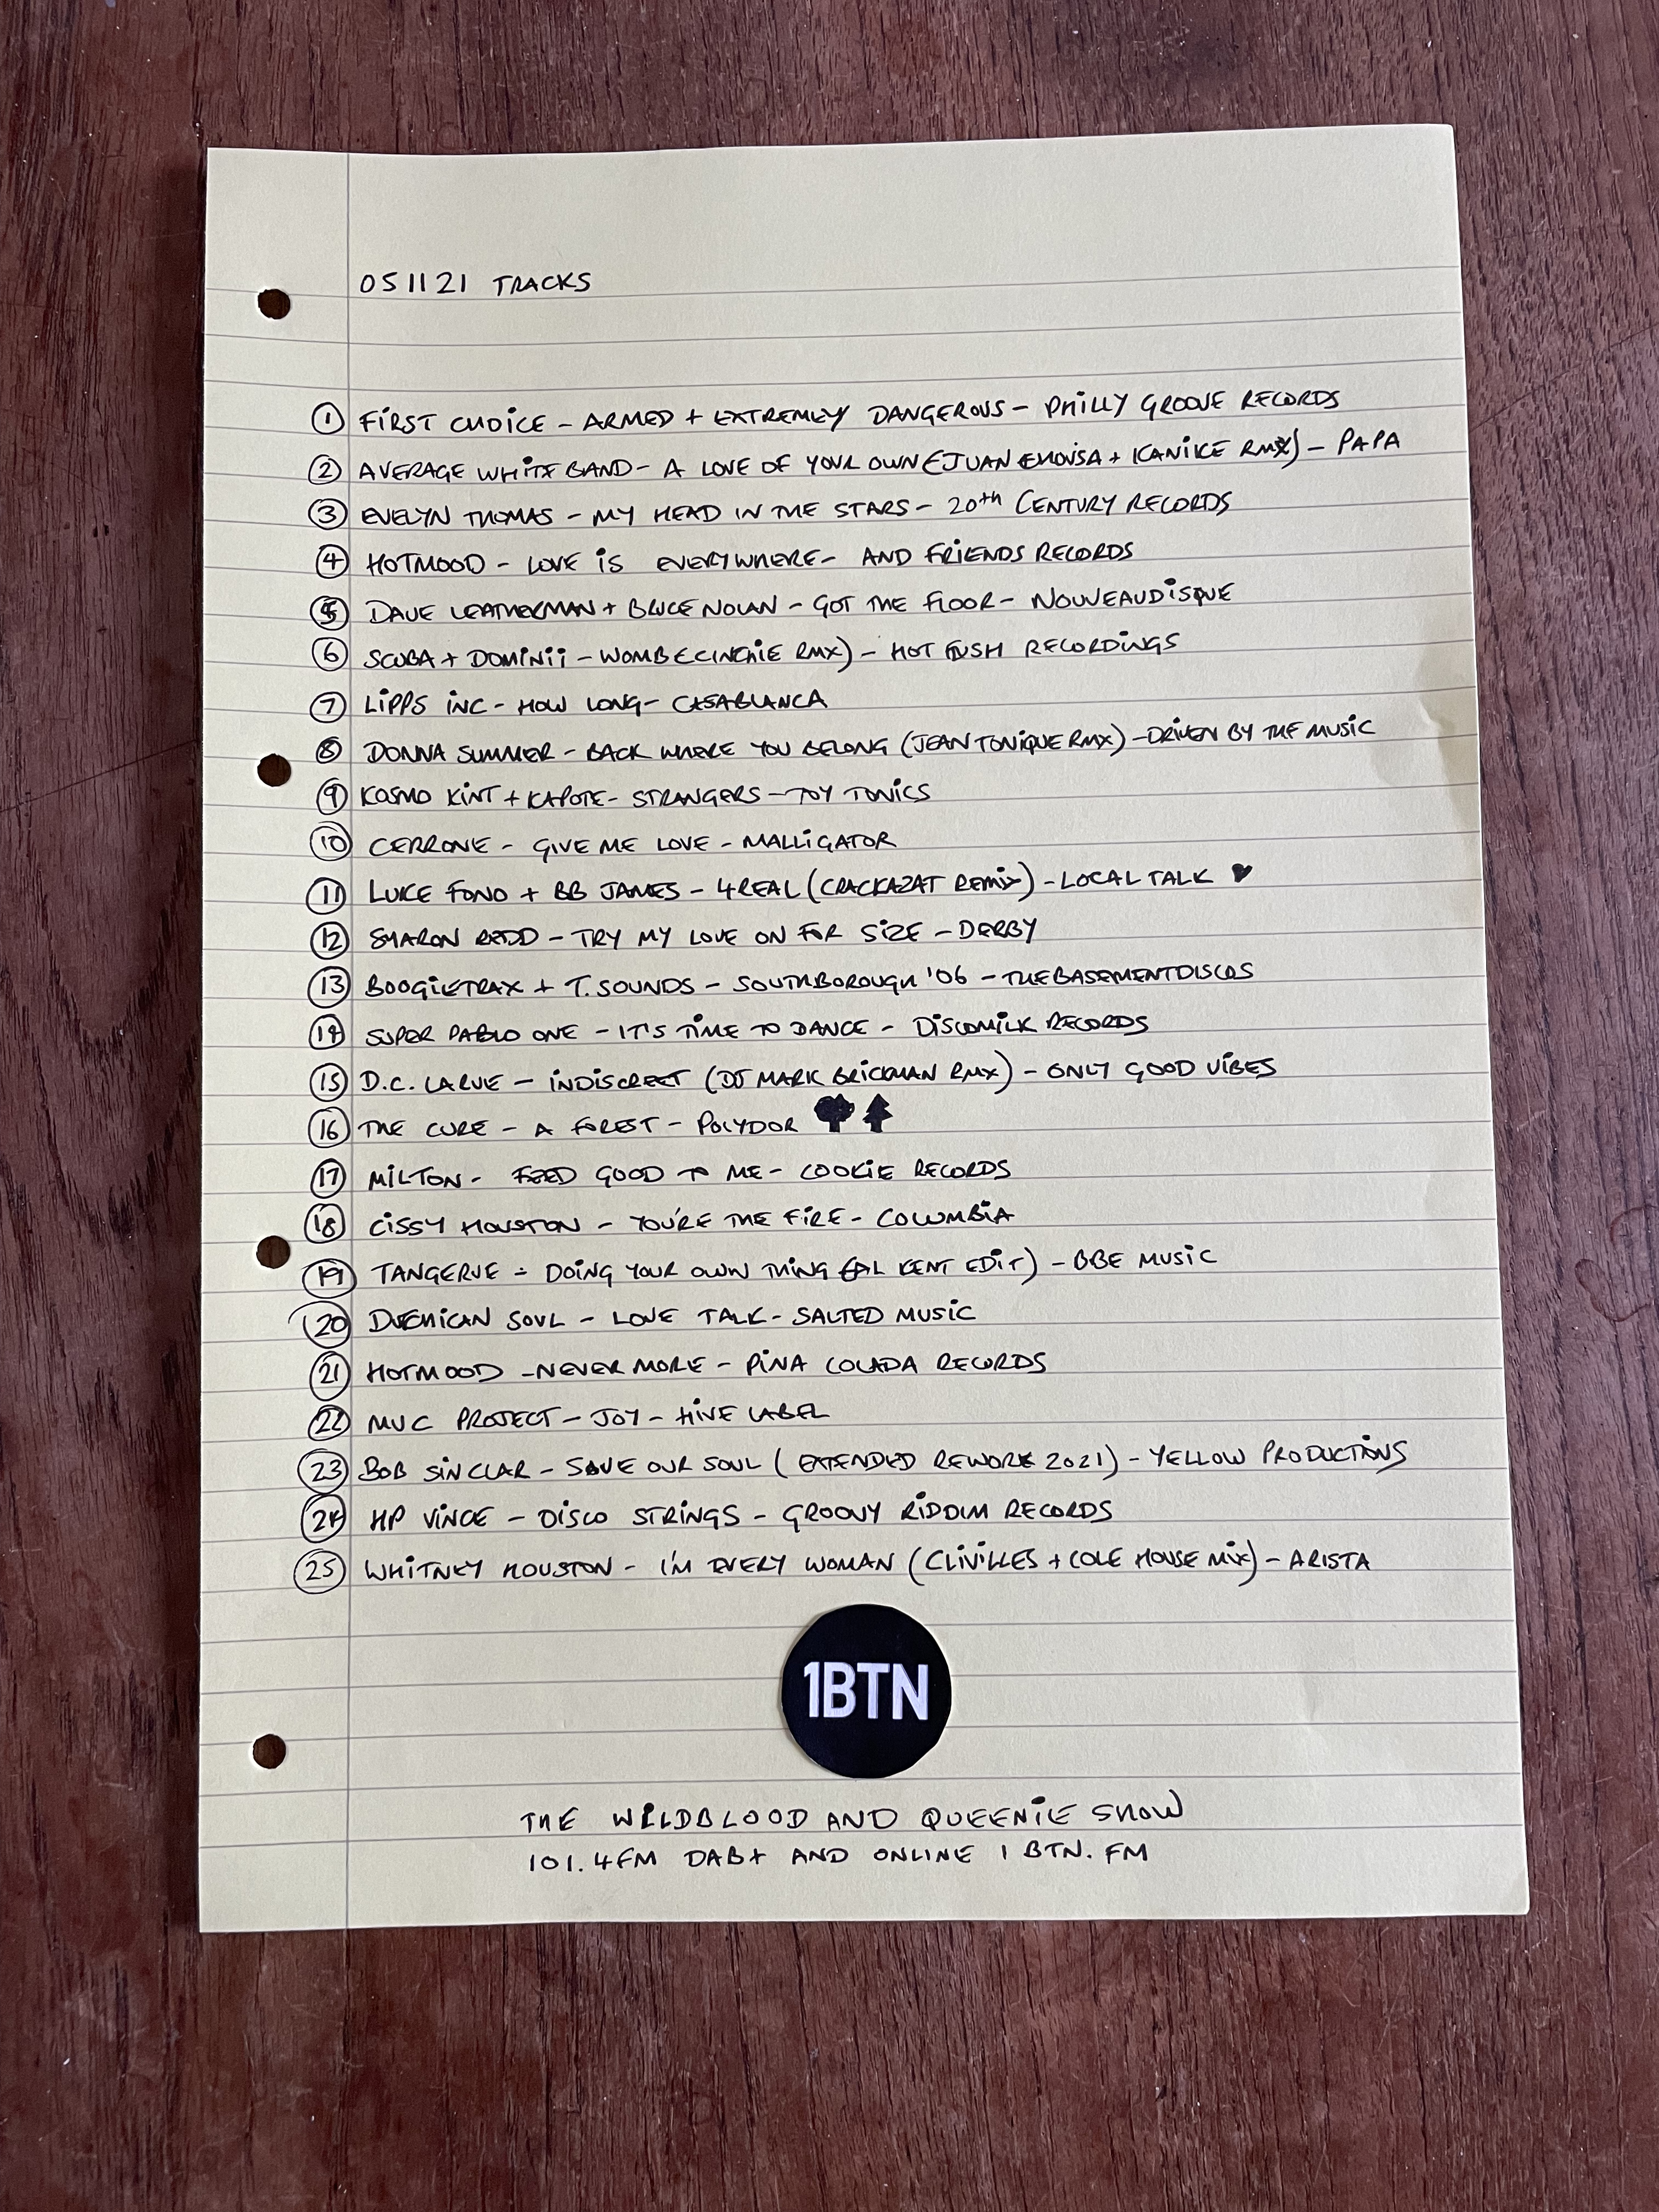 051121 TRACKS
1 FIRST CHOICE - ARMED + EXTREMLEY DANGEROUS - PHILLY GROOVE RECORDS
2 AVERAGE WHITE BAND - A LOVE OF YOUR OWN (JUAN + KANIKE RMX) - PAPA
3 EVELYN THOMAS - MY HEAD IN THE STARS - 20th CENTURY RECORDS
4 HOTMOOD - LOVE IS EVERYWHERE - AND FRIENDS RECORDS
5 DAVE LEATHERMAN + BRUCE NOLAN - GOT THE FLOOR - NOUVEAUDISQUE
6 SCUBA + DOMINII - WOMB (CINCHIE RMX) - HOT FUSH RECORDINGS
7 LIPPS INC - HOW LONG - CASABLANCA
8 DONNA SUMMER - BACK WHERE YOU BELONG (JEAN TONIQUE RMX) - DRIVEN BY THE MUSIC
9 KOSMO KINT + KAPOTE - STRANGERS - TOY TONICS
10 CERRONE - GIVE ME LOVE - MALLIGATOR
11 LUKE FONO + BB JAMES - 4REAL (CRACKAZAT REMIX) - LOCAL TALK ♥
12 SHARON REDD - TRY MY LOVE ON FOR SIZE - DERBY
13 BOOGIETRAX + T. SOUNDS - SOUTHBOROUGH '06 - THEBASEMENTDISCOS
14 SUPER PABLO ONE - IT'S TIME TO DANCE - DISCOMILK RECORDS
15 D.C. LARUE - INDISCREET (DJ MARK BRICKMAN RMX) - ONLY GOOD VIBES
16 THE CURE - A FOREST - POLYDOR
17 MILTON - FEED GOOD TO ME - COOKIE RECORDS
18 CISSY HOUSTON - YOU'RE THE FIRE - COLUMBIA
19 TANGERUE - DOING YOUR OWN THING (AL KENT EDIT) - BBE MUSIC
20 DUTCHICAN SOUL - LOVE TALK - SALTED MUSIC
21 HOTMOOD - NEVER MORE - PINA COLADA RECORDS
22 MUC PROJECT - JOY - HIVE LABEL
23 BOB SINCLAR - SAVE OUR SOUL (EXTENDED REWORK 2021) - YELLOW PRODUCTIONS
24 HP VINCE - DISCO STRINGS - GROOVY RIDDIM RECORDS
25 WHITNEY HOUSTON - I'M EVERY WOMAN (CLIVILLES + COLE HOUSE MIX) - ARISTA
1BTN
THE WILDBLOOD AND QUEENIE SHOW
101.4FM DAB+ AND ONLINE 1 BTN.FM